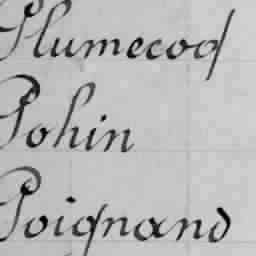 Plumecoq
Pohin
Poignand